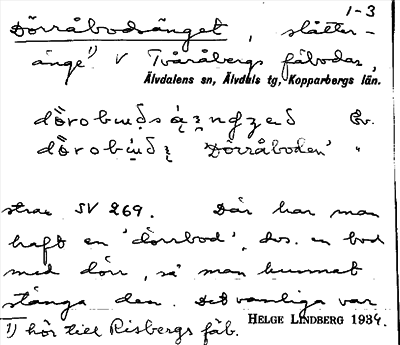 1-3
Dörråbodsänget, slåtter-
änge¹⁾ V Tvåråbergs fäbodar,
Älvdalens sn, Älvdals tg, Kopparbergs län.
Ev.
'Dörråboden' "
strax SV 269. Där har man
haft en 'dörrbod', dvs. en bod
med dörr, så man kunnat
stänga den. Det vanliga var
1) hör till Risbergs fäb.
HELGE LINDBERG 1934.